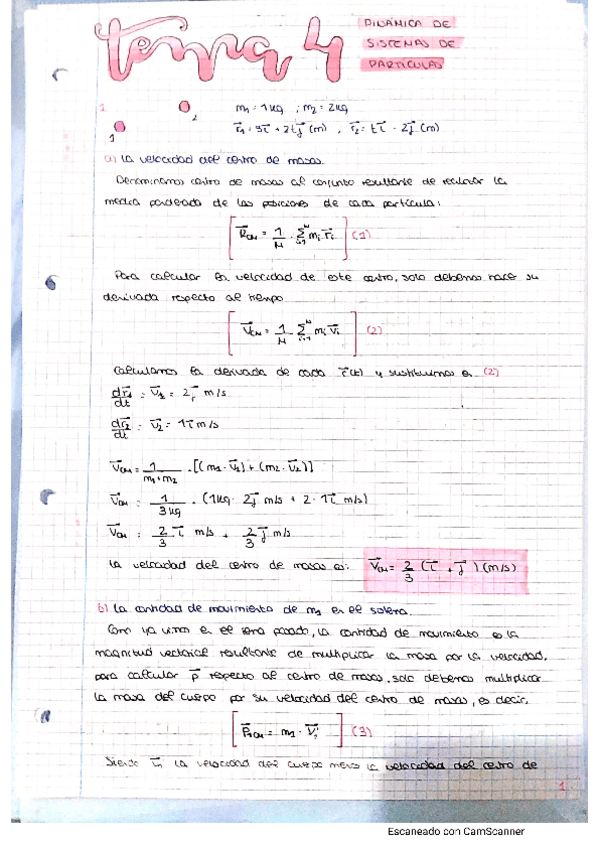 tema 4
DINÁMICA DE
SISTEMAS DE
PARTÍCULAS
1.
2
1
m₁ = 1 kg ; m₂ = 2 kg
r⃗₁ = 3i⃗ + 2t j⃗ (m) , r⃗₂ = t i⃗ - 2j⃗ (m)
a) La velocidad del centro de masas.
Denominamos centro de masas al conjunto resultante de realizar la
media ponderada de las posiciones de cada partícula:
[R⃗cм = 1/M · Σ mᵢ r⃗ᵢ] (1)
Para calcular la velocidad de este centro, solo debemos hacer su
derivada respecto al tiempo
[V⃗cм = 1/M Σ mᵢ v⃗ᵢ] (2)
Calculamos la derivada de cada r⃗(t) y sustituimos en (2)
dr⃗₁/dt = v⃗₁ = 2j⃗ m/s
dr⃗₂/dt = v⃗₂ = 1i⃗ m/s
V⃗cм = 1/(m₁+m₂) · [(m₁ · v⃗₁) + (m₂ · v⃗₂)]
V⃗cм = 1/3kg · (1kg · 2j⃗ m/s + 2 · 1i⃗ m/s)
V⃗cм = 2/3 i⃗ m/s + 2/3 j⃗ m/s
La velocidad del centro de masas es: V⃗cм = 2/3 (i⃗ + j⃗) (m/s)
b) La cantidad de movimiento de m₁ en el sistema.
Como ya vimos en el tema pasado, la cantidad de movimiento es la
magnitud vectorial resultante de multiplicar la masa por la velocidad,
para calcular p⃗ respecto al centro de masas, solo debemos multiplicar
la masa del cuerpo por su velocidad del centro de masas, es decir,
[P⃗₁cм = m₁ · V⃗₁'] (3)
Siendo la velocidad del cuerpo menos la velocidad del centro de
1
Escaneado con CamScanner